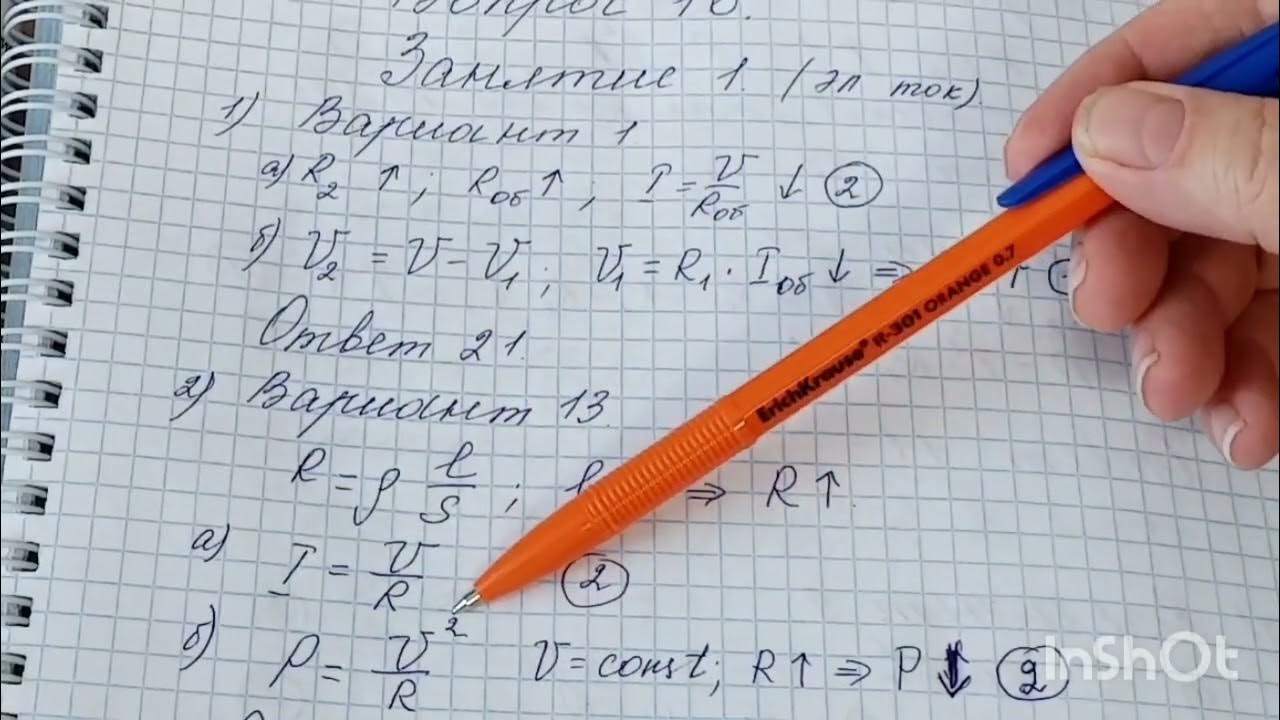 Вопрос 10.
Занятие 1. (эл ток).
1) Вариант 1
а) R₂ ↑ ; Rоб ↑ ; I = U/Rоб ↓ (2)
б) U₂ = U - U₁ ; U₁ = R₁ · Iоб ↓ ⇒
Ответ 21.
2) Вариант 13.
R = ρ l/S ; l ⇒ R ↑.
а) I = U/R (2)
б) P = U²/R U = const; R ↑ ⇒ P ↓ (2)
ErichKrause® R-301 ORANGE 0.7
InShOt